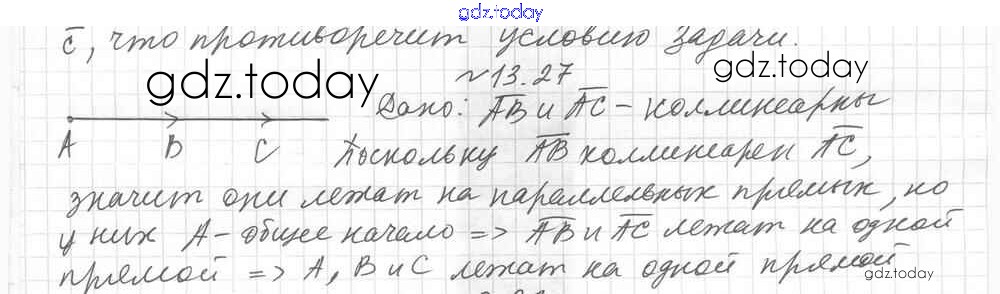 gdz.today
c̅, что противоречит условию задачи.
gdz.today
№13.27
gdz.today
Дано: A̅B̅ и A̅C̅ - коллинеарны
A B C
Поскольку A̅B̅ коллинеарен A̅C̅,
значит они лежат на параллельных прямых, но
у них A - общее начало => A̅B̅ и A̅C̅ лежат на одной
прямой => A, B и C лежат на одной прямой
gdz.today